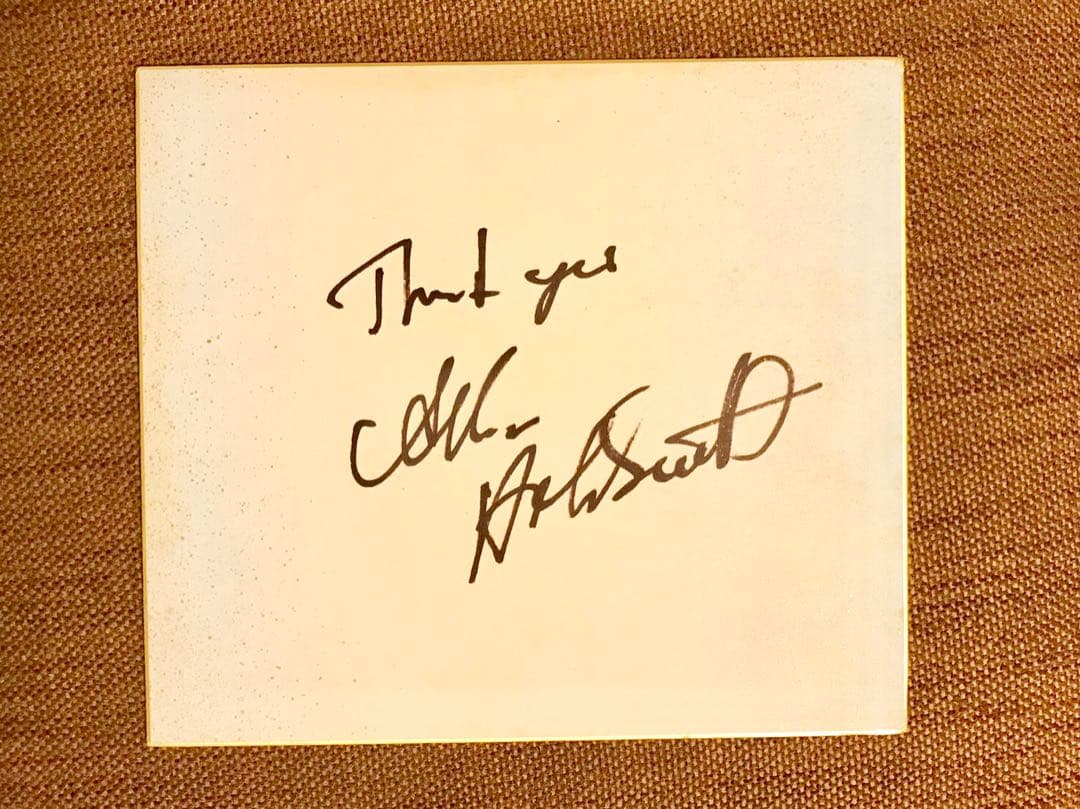 Thank you
Allan
Holdsworth